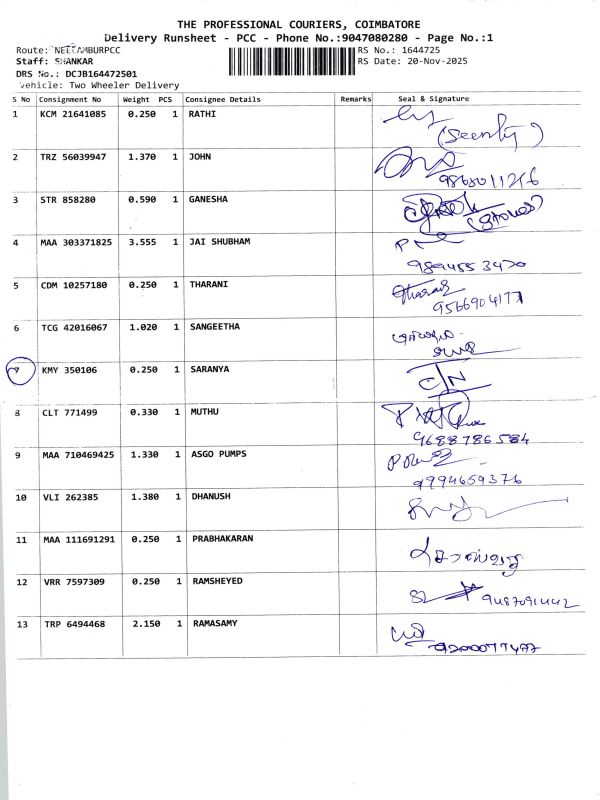 THE PROFESSIONAL COURIERS, COIMBATORE
Delivery Runsheet - PCC - Phone No.:9047080280 - Page No.:1
Route: NEELAMBURPCC RS No.: 1644725
Staff: SHANKAR RS Date: 20-Nov-2025
DRS No.: DCJB164472501
Vehicle: Two Wheeler Delivery
S No Consignment No Weight PCS Consignee Details Remarks Seal & Signature
1 KCM 21641085 0.250 1 RATHI
2 TRZ 56039947 1.370 1 JOHN
3 STR 858280 0.590 1 GANESHA
4 MAA 303371825 3.555 1 JAI SHUBHAM
9894553420
5 CDM 10257180 0.250 1 THARANI Tharani
9566904177
6 TCG 42016067 1.020 1 SANGEETHA
7 KMY 350106 0.250 1 SARANYA
8 CLT 771499 0.330 1 MUTHU
9688786584
9 MAA 710469425 1.330 1 ASGO PUMPS
9994659376
10 VLI 262385 1.380 1 DHANUSH
11 MAA 111691291 0.250 1 PRABHAKARAN
12 VRR 7597309 0.250 1 RAMSHEYED 9487091442
13 TRP 6494468 2.150 1 RAMASAMY